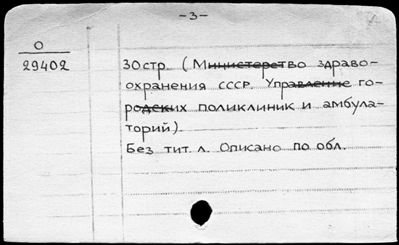 -3-
О
29402
30 стр. (Министерство здраво-
охранения СССР. Управление го-
родских поликлиник и амбула-
торий).
Без тит. л. Описано по обл.